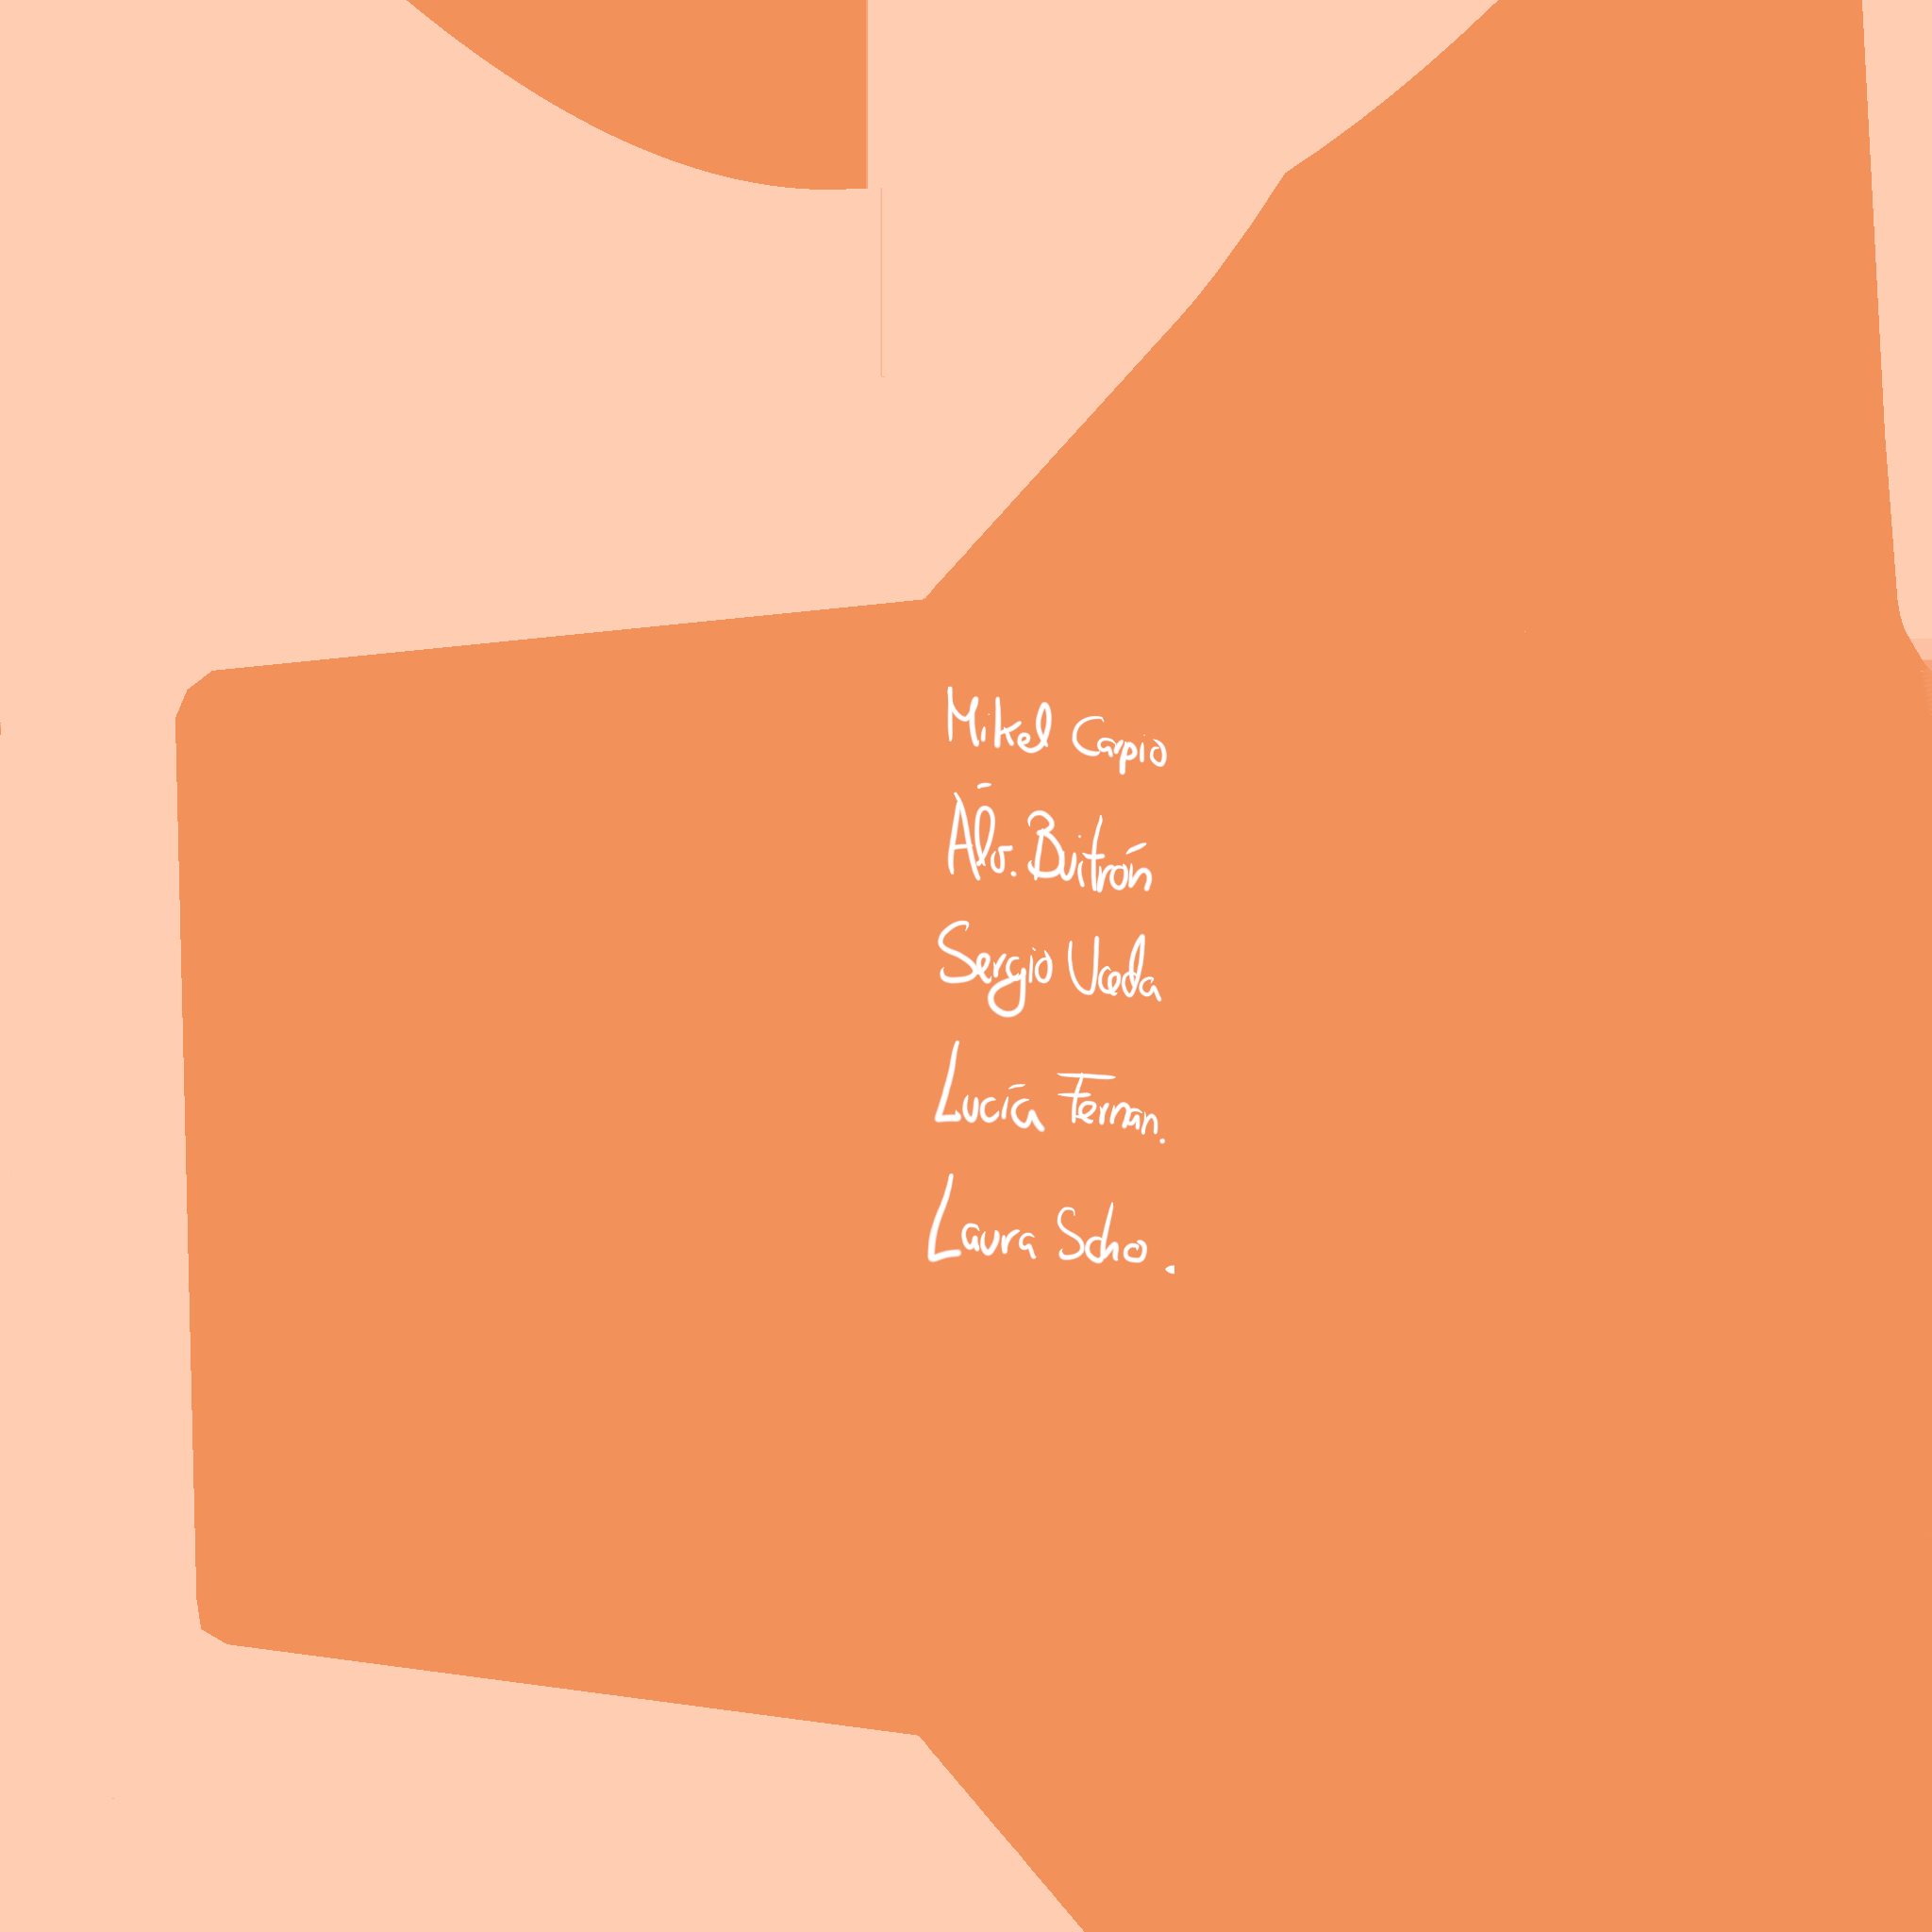 Mikel Capio
Álv. Buitrón
Sergio Ueda
Lucía Fernán.
Laura Scho.